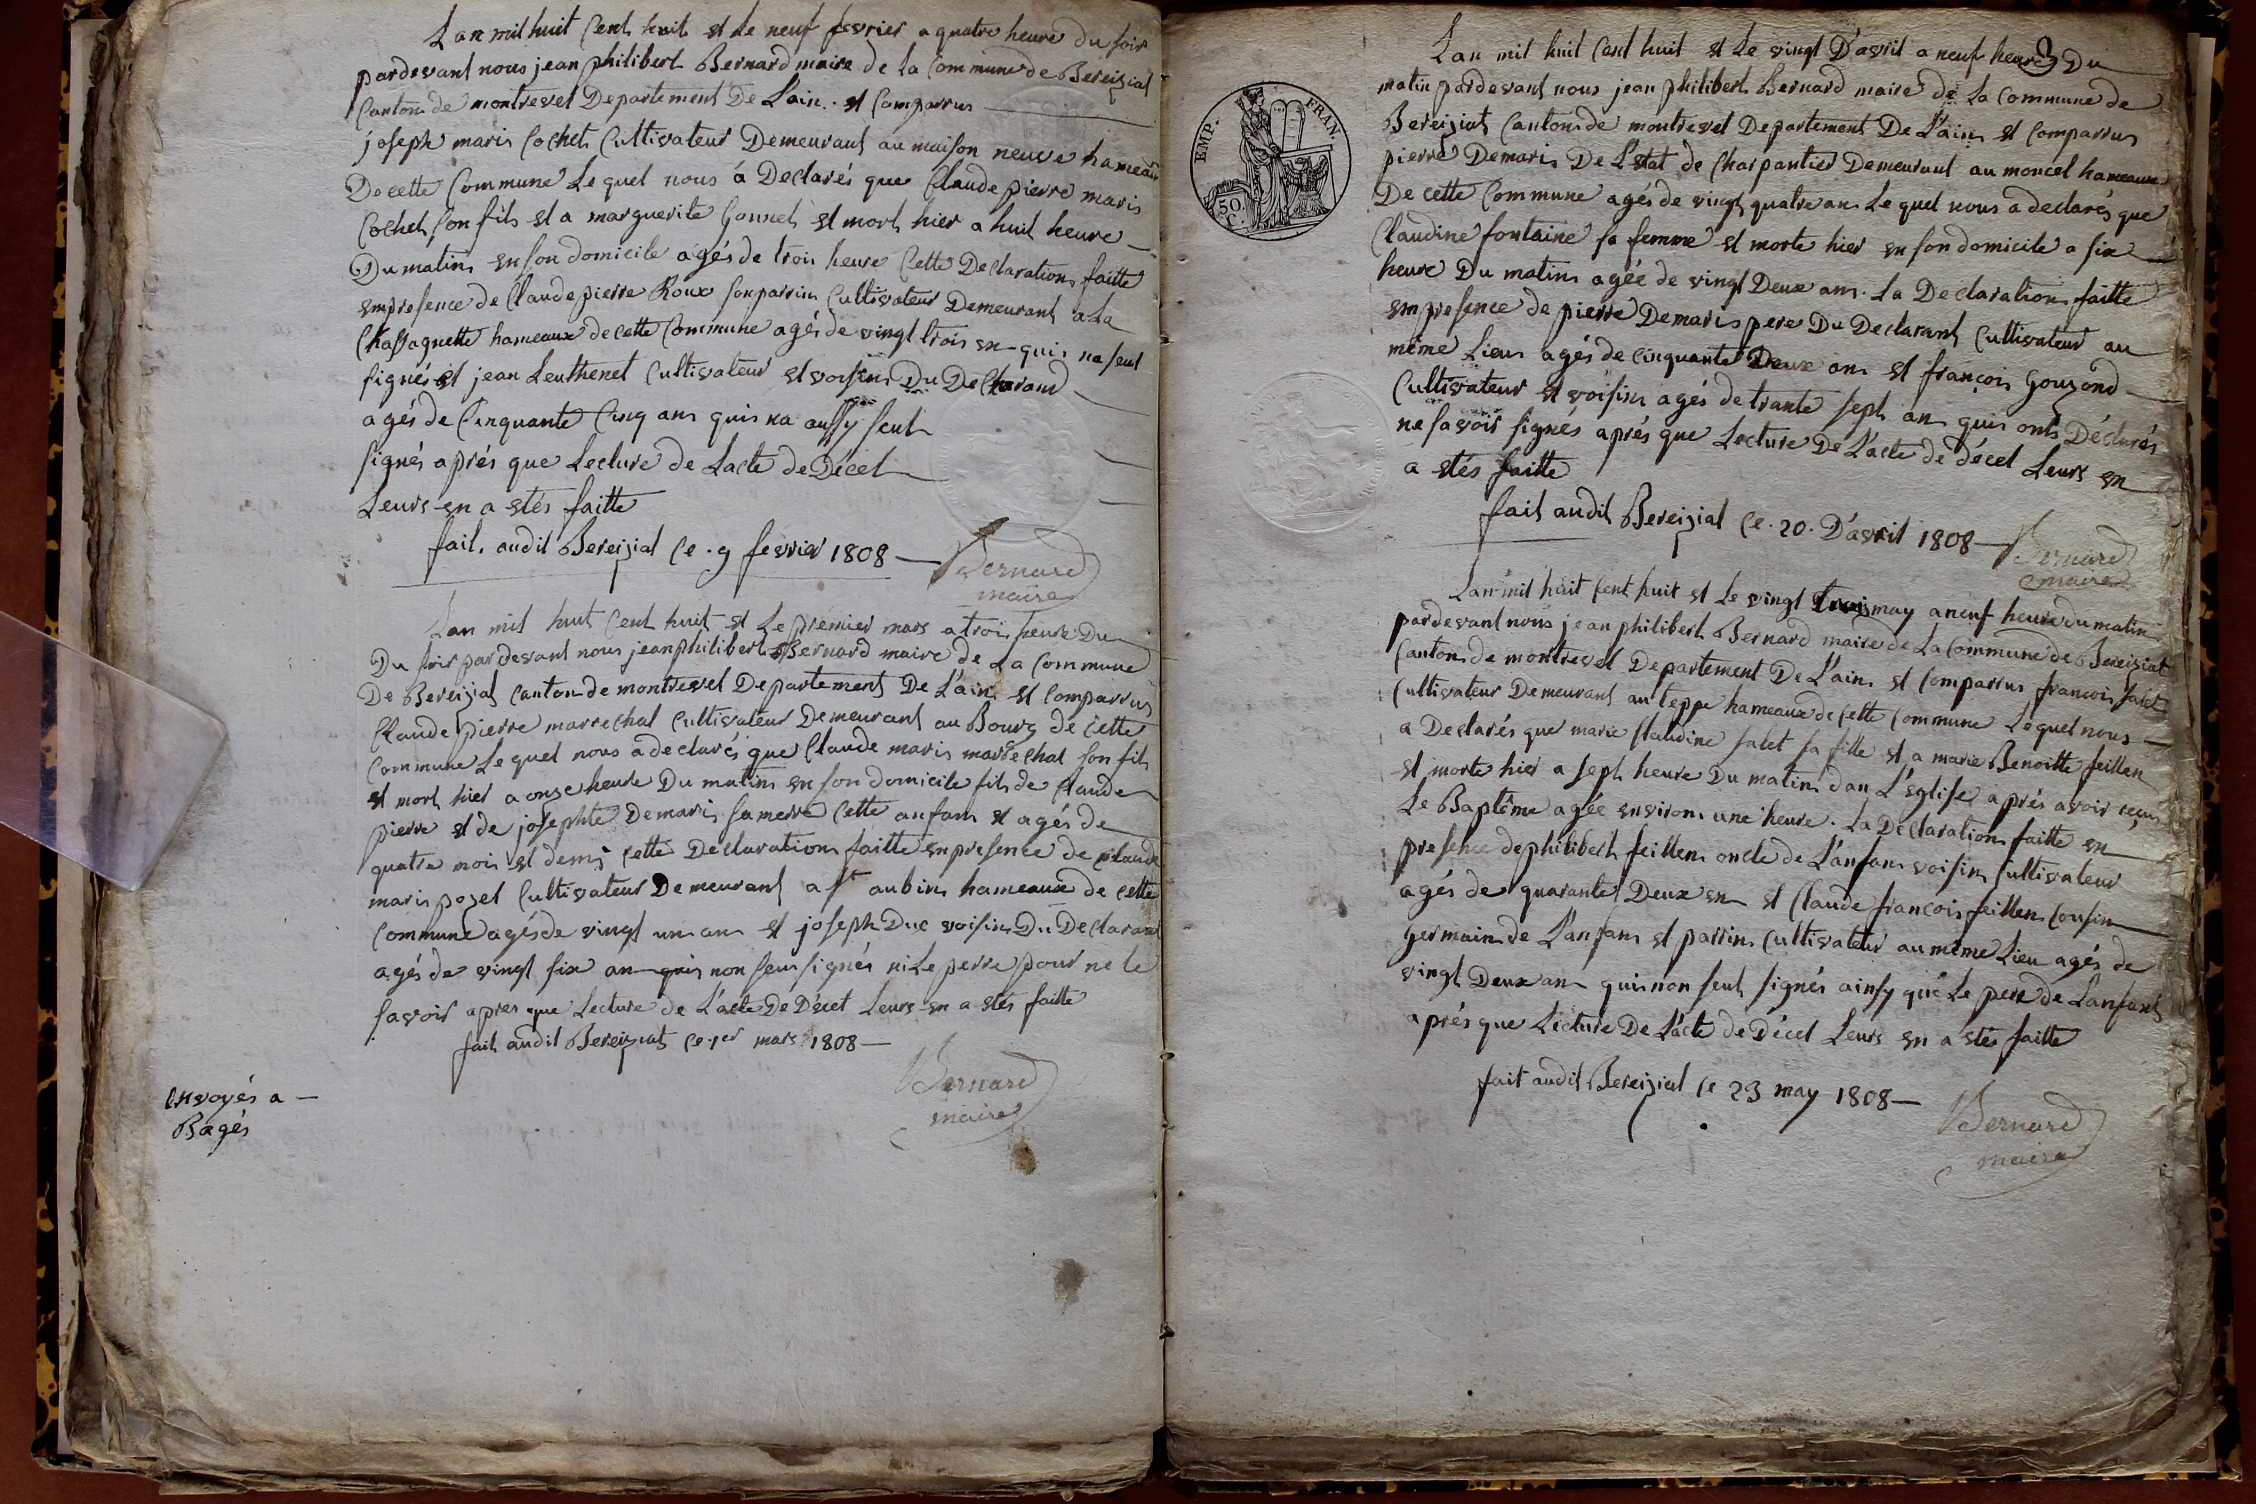 Lan mil huit Cent huit et Le neuf fevrier a quatre heure du soir
pardevant nous jean philibert Bernard maire de La Commune de Bereiziat
Canton de montrevel Departement De L'ain. et Comparrus
joseph maris Cochet Cultivateur Demeurant au maison neuve hameau
De cette Commune Le quel nous á Declarés que Claude pierre maris
Cochet son fils et a marguerite Gonnet et mort hier a huit heure
Du matin en son domicile agés de trois heure Cette Declaration faitte
en presence de Claude pierre Roux son parrin Cultivateur Demeurant a La
Chassagnette hameaux de cette Commune agés de vingt trois an quis na seut
signés et jean Leuthenet Cultivateur et voisin Du Declarand
agés de Cinquante Cinq ans quis na aussy seut
signés aprés que Lecture de Lacte de Décet
Leurs en a etés faitte
fait audit Bereizial Ce . 9 fevrier 1808
Bernard
maire
Lan mil huit Cent huit et Le premier mars a trois heure Du
Du soir pardevant nous jean philibert Bernard maire de La Commune
De Bereiziat Canton de montrevel Departement De L'ain et Comparrus
Claude pierre marrechal Cultivateur Demeurant au Bourg de cette
Commune Le quel nous a declarés que Claude maris marrechal son fils
et mort hier a onze heure Du matin en son domicile fils de Claude
pierre et de josephte Demaris sa merre Cette anfans et agés de
quatre mois et demi Cette Declaration faitte en presence de Claude
maris pozet Cultivateur Demeurant a St aubin hameaux de cette
Commune agés de vingt un ans et joseph Duc voisin Du Declarand
agés de vingt six an quis non seus signés ni Le perre pour ne Le
savoir apres que Lecture de L'acte De Décet Leurs en a etés faitte
fait audit Bereiziat Ce . 1er mars 1808
Bernard
maire
envoyés a
Bagés
EMP. FRAN.
50. C.
3
Lan mil huit Cent huit et Le vingt D'avril a neuf heures Du
matin pardevant nous jean philibert Bernard maire de La Commune de
Bereiziat Canton de montrevel Departement De L'ain et Comparrus
pierre Demaris De L'etat de Charpantier Demeurant au moncel hameaux
De cette Commune agés de vingt quatre ans Le quel nous a declarés que
Claudine fontaine sa femme et morte hier en son domicile a six
heure Du matin agée de vingt Deux ans. La Declaration faitte
en presence de pierre Demaris pere Du Declarant Cultivateur au
même Lieu agés de Cinquante Deux ans et françois Gouzond
Cultivateur et voisin agés de trante sept an quis onts Déclarés
ne savoir signés aprés que Lecture De L'acte de décet Leurs en
a etés faitte
fait audit Bereizial Ce . 20 . D'avril 1808
Bernard
maire
Lan mil huit Cent huit et Le vingt trois may a neuf heure du matin
pardevant nous jean philibert Bernard maire de La Commune de Bereiziat
Canton de montrevel Departement De L'ain et Comparrus francois salet
Cultivateur Demeurant au teppe hameaux de cette Commune Le quel nous
a Declarés que marie Claudine salet sa fille et a marie Benoitte feillen
et morte hier a sept heure Du matin dan L'eglise aprés avoir reçus
Le Baptême agée environ une heure. La Declaration faitte en
presence de philibert feillen oncle de L'anfans voisin Cultivateur
agés de quarante Deux an et Claude francois feillen Cousin
germain de L'anfans et parrin Cultivateur au même Lieu agés de
vingt Deux an quis non seut signés ainsy que Le pere de L'anfant
aprés que Lecture De L'acte de Décet Leurs en a etés faitte
fait audit Bereizial Ce 23 may 1808
Bernard
maire